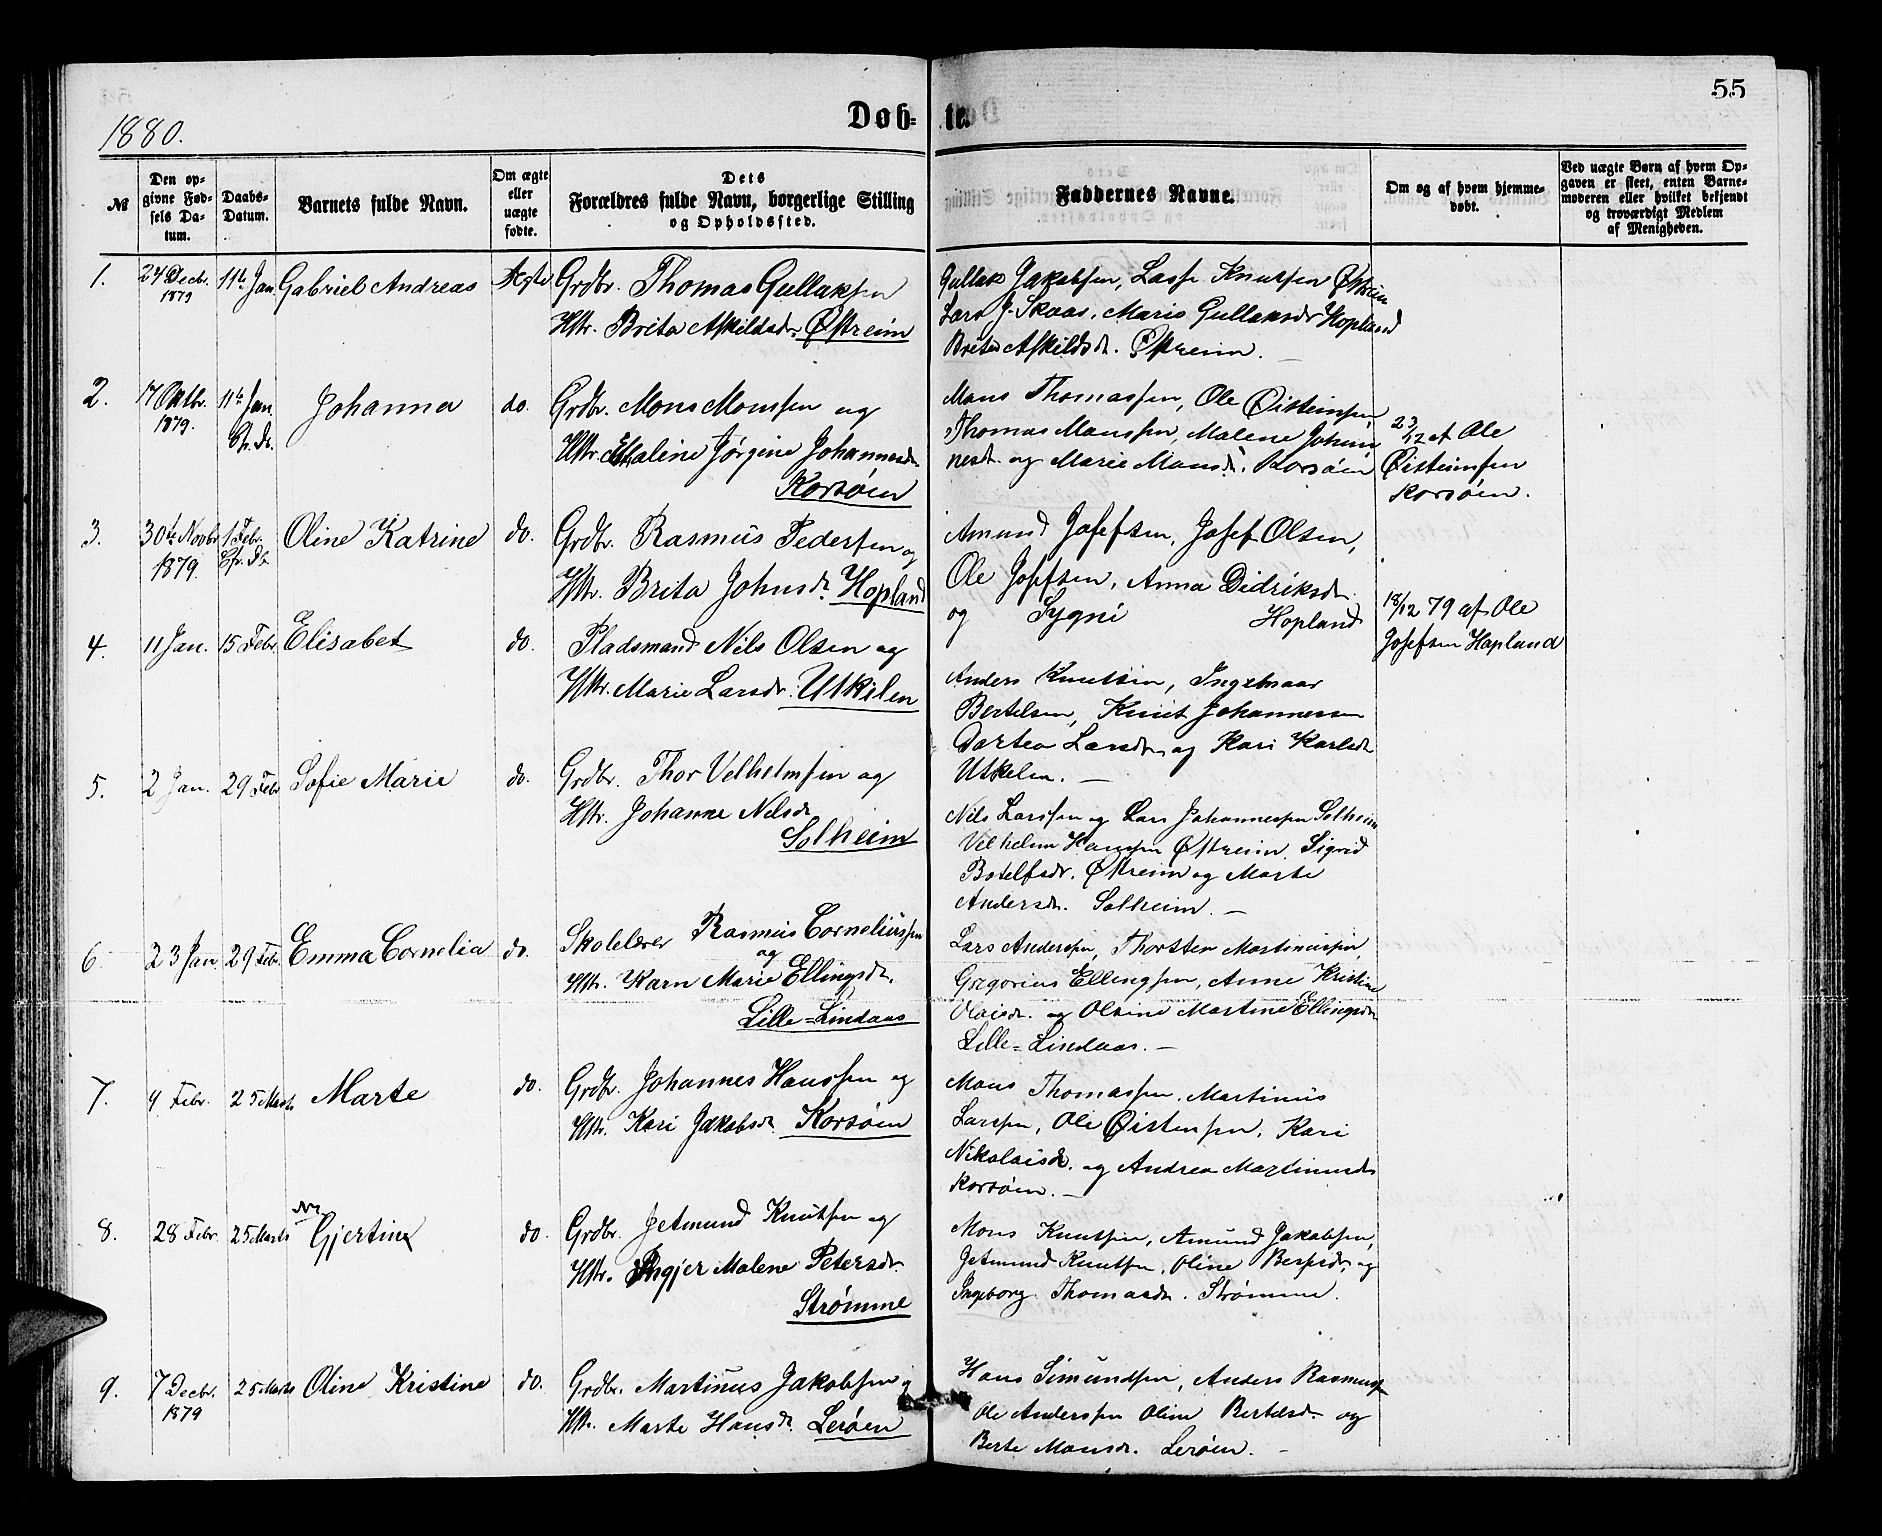 55
Døb-te.
1880.
№
Den opgivne Fødsels Datum.
Daabs-Datum.
Barnets fulde Navn.
Om ægte eller uægte fødte.
Dets Forældres fulde Navn, borgerlige Stilling og Opholdssted.
Faddernes Navne.
Om og af hvem hjemmedøbt.
Ved uægte Børn af hvem Opgaven er skeet, enten Barnemoderen eller hvilket bekjendt og troværdigt Medlem af Menigheden.
1. 24 Decbr. 1879 11te Jan. Gabriel Andreas Ægte
Grdbr. Thomas Gullaksen
Hstr. Brita Askildsdr. Østreim
Gullak Jakobsen, Lasse Knutsen Østreim
Lars J. Skaas, Marie Gullaksdr Hopland
Brita Askildsdr. Østreim. —
2. 17 Oktbr. 1879. 11te Jan. Johanna do.
Grdbr. Mons Monssen og
Hstr. Maline Jørgine Johannesdr.
Korsøen
Mons Thomassen, Ole Øisteinsen,
Thomas Monssen, Malene Johannesdr. og Marie Monsdr. Korsøen
23/12 af Ole
Øisteinsen
Korsøen.
3. 30te Novbr 1879. 1 Febr. Oline Katrine do.
Grdbr. Rasmus Pedersen og
Hstr. Brita Johnsdr. Hopland
Amund Josefsen, Josef Olsen,
Ole Josefsen, Anna Didriksdr.
og Sygni Hopland
18/12 79 af Ole
Josefsen Hopland
4. 11 Jan. 15 Febr. Elisabet do.
Pladsmand Nils Olsen og
Hstr. Marie Larsdr. Utkilen
Anders Knutsen, Ingebrigt
Bertelsen, Knut Johannessen
Dortea Larsdr. og Kari Karlsdr
Utkilen. —
5. 2 Jan. 29 Febr Sofie Marie do.
Grdbr. Thor Velhelmsen og
Hstr. Johanne Nelsdr
Solheim
Nils Larssen og Lars Johannessen Solheim
Velhelm Hanssen Østreim, Sigrid
Botelfsdr. Østreim og Marte
Andersdr. Solheim. —
6. 23 Jan 29 Febr. Emma Cornelia do.
Skolelærer Rasmus Corneliussen
og
Hstr. Karn Marie Ellingsdr.
Lille-Lindaas
Lars Anderssen, Thorsten Martinussen,
Gregorius Ellingsen, Anne Kristine
Olaisdr. og Olsine Martine Ellingsdr
Lille-Lindaas. —
7. 4 Febr. 25 Marts Marte do.
Grdbr. Johannes Hanssen og
Hstr. Kari Jakobsdr. Korsøen
Mons Thomassen, Martinus
Larssen, Ole Øistensen, Kari
Nikolaisdr. og Andrea Martinusdr
Korsøen. —
8. 28 Febr. 25 Marts Gjertine do.
Grdbr. Jetmund Knutsen og
Hstr. Ingjer Malene Petersdr.
Strømme
Mons Knutsen, Amund Jakobsen,
Jetmund Knutsen, Oline og
Ingeborg Thomasdr. Strømme.
9. 7 Decbr. 1879 25 Marts Oline Kristine do.
Grdbr. Martinus Jakobsen og
Hstr. Marte Hansdr. Lerøen
Hans Simundsen, Anders Rasmussen
Ole Anderssen Oline Bertelsdr. og
Berte Monsdr. Lerøen. —